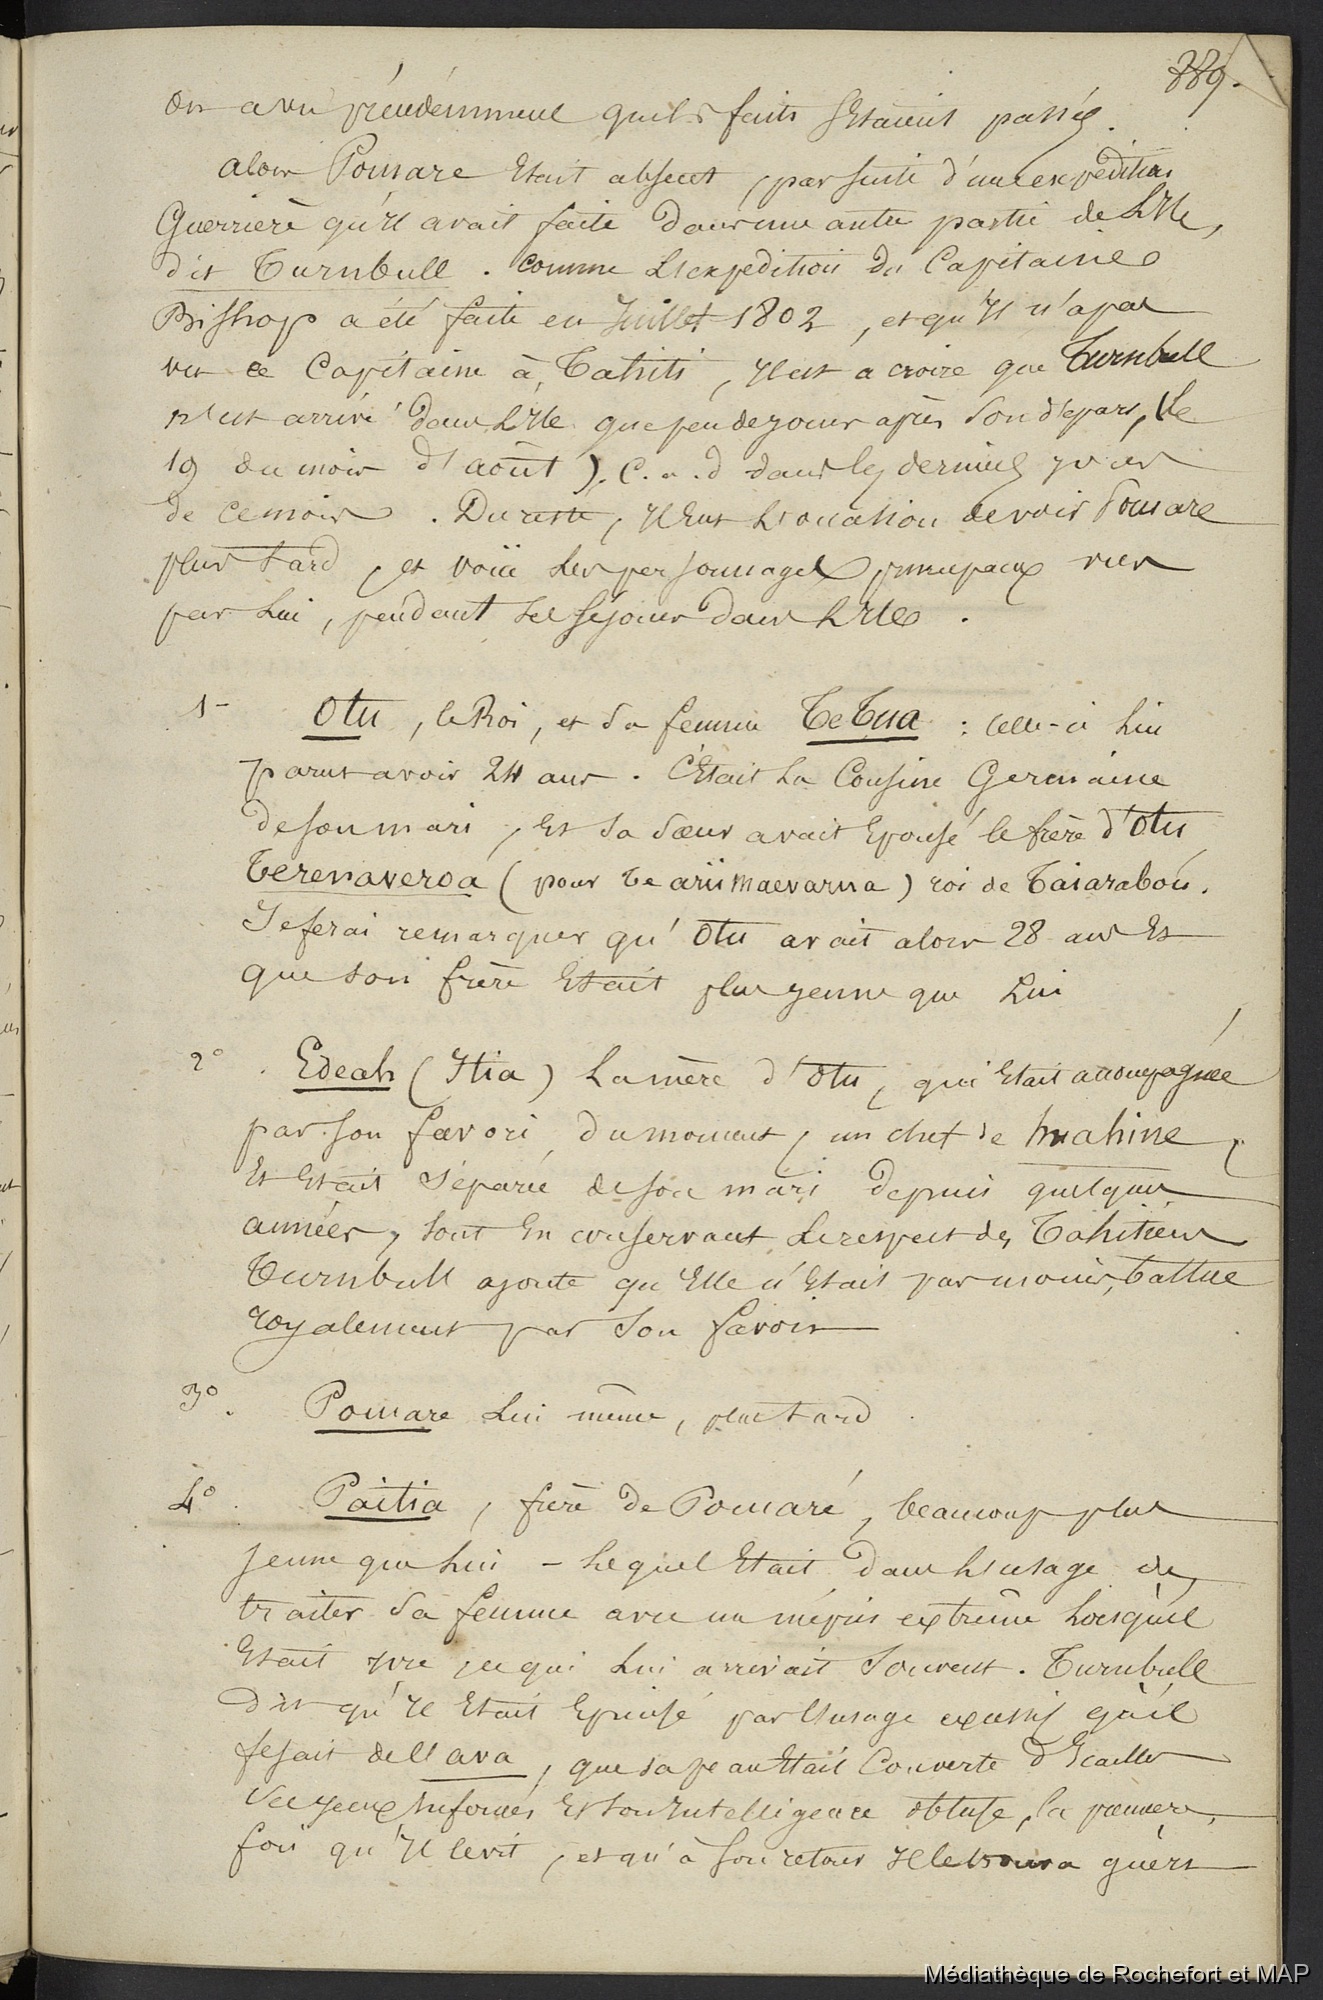 889.
on a vu précédemment que les faits s'étaient passés.
alors Pomare Etait absent, par suite d'une expédition
Guerrière qu'il avait faite dans une autre partie de L'Ile,
dit Turnbull. comme L'expedition du Capitaine
Bishop a été faite en Juillet 1802, et qu'Il n'a pas
vu ce Capitaine à Tahiti, Il est a croire que Turnbull
n'est arrivé dans L'Ile que peu de jours après son départ, (le
19 du mois d'août). C.a.d dans les derniers jours
de ce mois. Du reste, Il Eut L'occasion de voir Pomare
plus tard, et voici Les personnages principaux vus
par Lui, pendant ses séjours dans L'Ile.
1- Otu, le Roi, et sa femme TeTua : celle-ci Lui
parut avoir 24 ans. C'Etait La Cousine Germaine
de son mari, Et sa sœur avait Epousé le frère d'Otu
Terenaveroa (pour Te arii maevarua) roi de Taiarabou.
Je ferai remarquer qu'Otu avait alors 28 ans Et
que son frère Etait plus jeune que Lui
2° Edeah (Itia) La mère d'Otu, qui Etait accompagnée
par son favori du moment, un chef de huahine,
Et Etait séparée de son mari depuis quelques
années, tout En conservant Le respect des Tahitiens
Turnbull ajoute qu'Elle n'Etait pas moins battue
royalement par son favori
3°. Pomare Lui même, plus tard.
4°. Paitia, frère de Pomaré, beaucoup plus
jeune que Lui - Lequel Etait dans L'usage de
traiter sa femme avec un mépris extrême Lorsqu'il
Etait yvre, ce qui Lui arrivait souvent. Turnbull
dit qu'Il Etait Epuisé par L'usage excessif qu'il
fesait de L'ava, que sa peau Etait Couverte d'Ecailles
ses yeux Enfoncés Et son Intelligence obtuse, la première
fois qu'Il le vit, et qu'à son retour Il le trouva guéri
Médiathèque de Rochefort et MAP